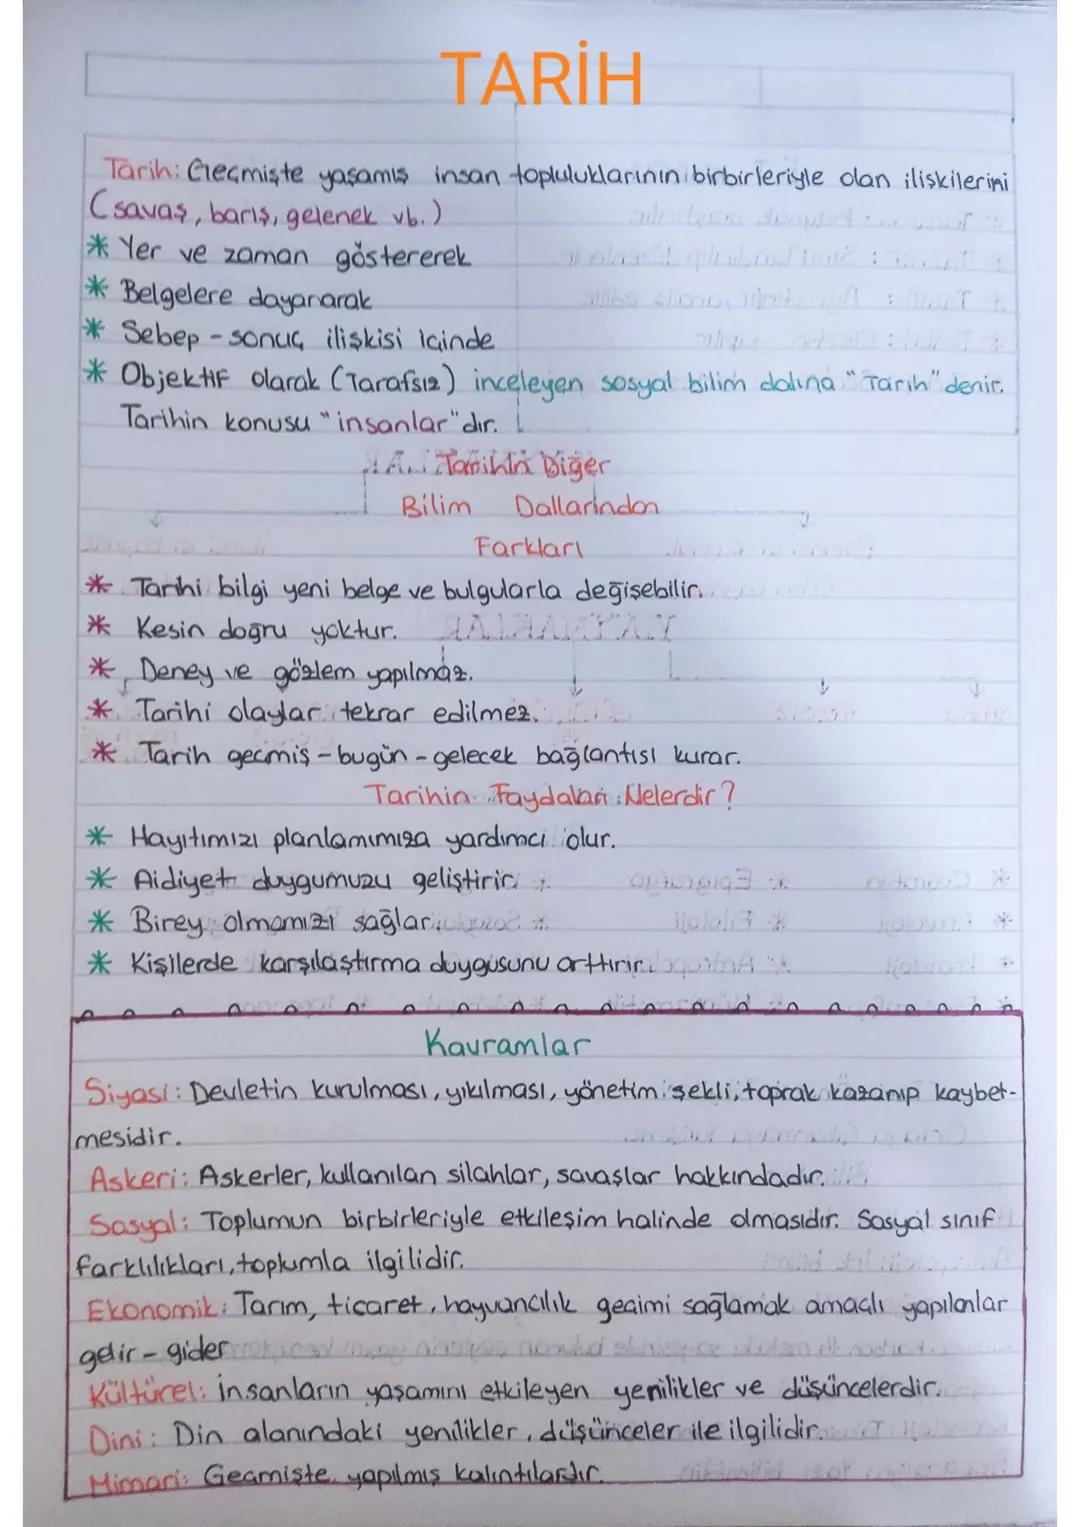 TARİH
Tarih: Geçmişte yaşamış insan topluluklarının birbirleriyle olan ilişkilerini
(savaş, barış, gelenek vb.)
* Yer ve zaman göstererek
* Belgelere dayanarak
* Sebep - sonuç ilişkisi içinde
* Objektif olarak (Tarafsız) inceleyen sosyal bilim dalına "Tarih" denir.
Tarihin konusu "insanlar"dır.
Tarihin Diğer
Bilim Dallarından
Farkları
* Tarihi bilgi yeni belge ve bulgularla değişebilir.
* Kesin doğru yoktur.
* Deney ve gözlem yapılmaz.
* Tarihi olaylar tekrar edilmez.
* Tarih geçmiş - bugün - gelecek bağlantısı kurar.
Tarihin Faydaları Nelerdir?
* Hayıtımızı planlamımıza yardımcı olur.
* Aidiyet duygumuzu geliştirir.
* Birey olmamızı sağlar.
* Kişilerde karşılaştırma duygusunu arttırır.
Kavramlar
Siyasi: Devletin kurulması, yıkılması, yönetim şekli, toprak kazanıp kaybet-
mesidir.
Askeri: Askerler, kullanılan silahlar, savaşlar hakkındadır.
Sosyal: Toplumun birbirleriyle etkileşim halinde olmasıdır. Sosyal sınıf
farklılıkları, toplumla ilgilidir.
Ekonomik: Tarım, ticaret, hayvancılık geçimi sağlamak amaçlı yapılanlar
gelir - gider
Kültürel: İnsanların yaşamını etkileyen yenilikler ve düşüncelerdir.
Dini: Din alanındaki yenilikler, düşünceler ile ilgilidir.
Mimari: Geçmişte yapılmış kalıntılardır.